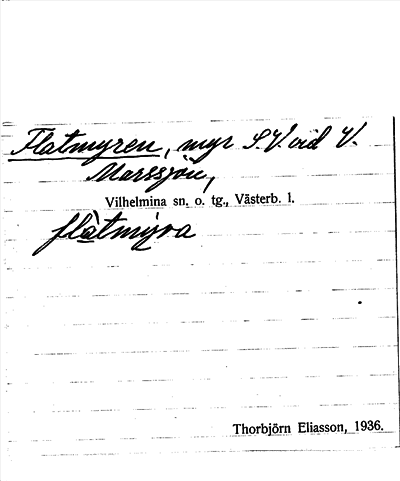 Flatmyren, myr S.V. vid V.
Marssjön,
Vilhelmina sn. o. tg., Västerb. l.
flàtmyra
Thorbjörn Eliasson, 1936.